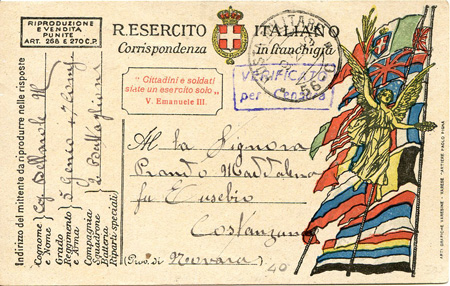 RIPRODUZIONE
E VENDITA
PUNITE
ART. 268 E 270 C.P.
R. ESERCITO ITALIANO
Corrispondenza in franchigia
"Cittadini e soldati
siate un esercito solo"
V. Emanuele III.
VERIFICATO
per censura
Al la Signora
Prando Maddalena
fu Eusebio
Costanzana
(Prov. di Novara)
40
Indirizzo del mittente da riprodurre nelle risposte
Cognome
e Nome
Grado
Reggimento
e Arma
5° Genio
Compagnia
Squadrone
Batteria
Riparti speciali
ARTI GRAFICHE VARESINE - VARESE